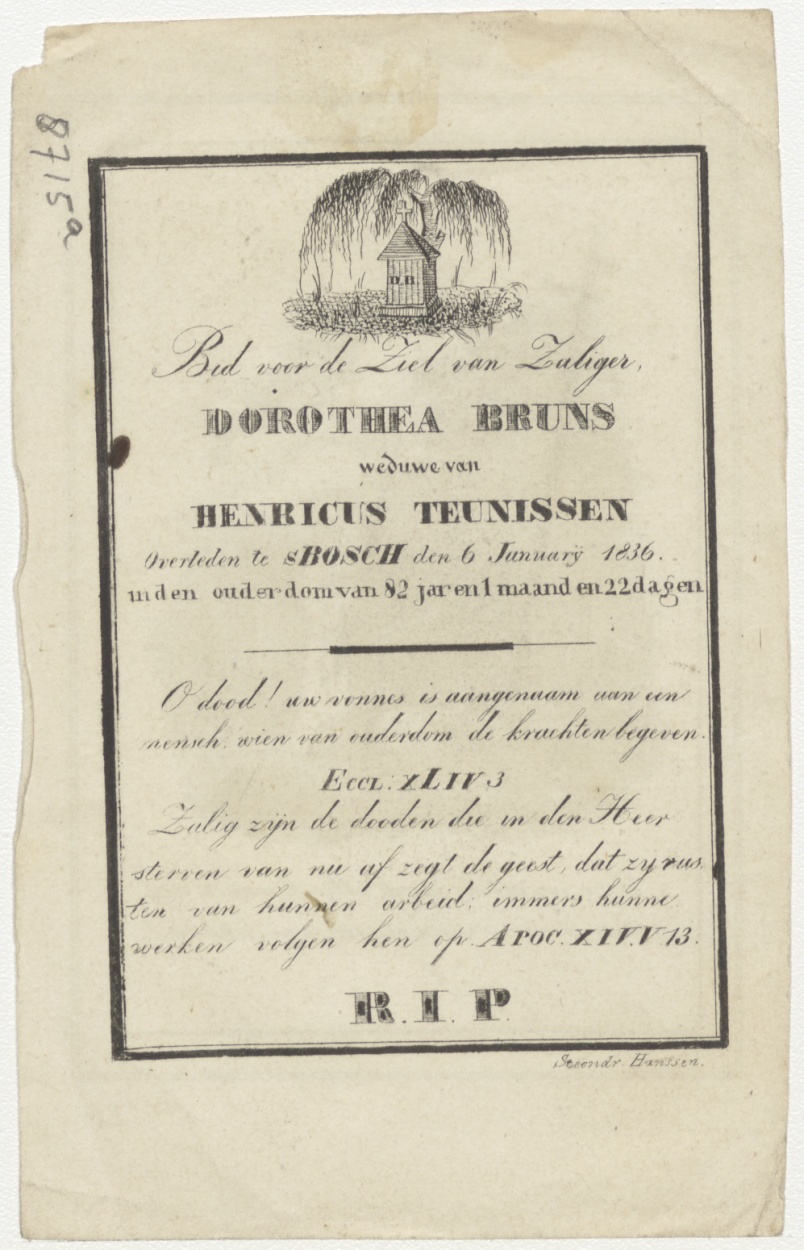 8715a
D.B.
Bid voor de Ziel van Zaliger,
DOROTHEA BRUNS
weduwe van
HENRICUS TEUNISSEN
Overleden te sBOSCH den 6 Januarÿ 1836.
in den ouderdom van 82 jaren 1 maand en 22 dagen
O dood! uw vonnes is aangenaam aan een
mensch. wien van ouderdom de krachten begeven.
ECCL: XLIV 3
Zalig zÿn de dooden die in den Heer
sterven van nu af zegt de geest, dat zy rus
ten van hunnen arbeid; immers hunne
werken volgen hen op. APOC. XIV. V 13.
R. I. P.
Steendr. Hanssen.